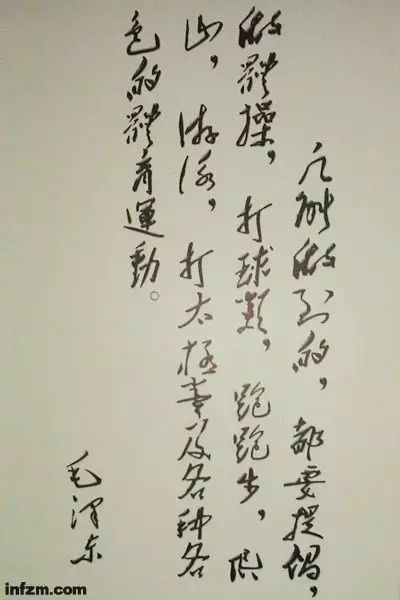 凡能做到的，都要提倡，
做體操，打球類，跑跑步，爬
山，游泳，打太極拳及各种各
色的體育運動。
毛澤东
infzm.com